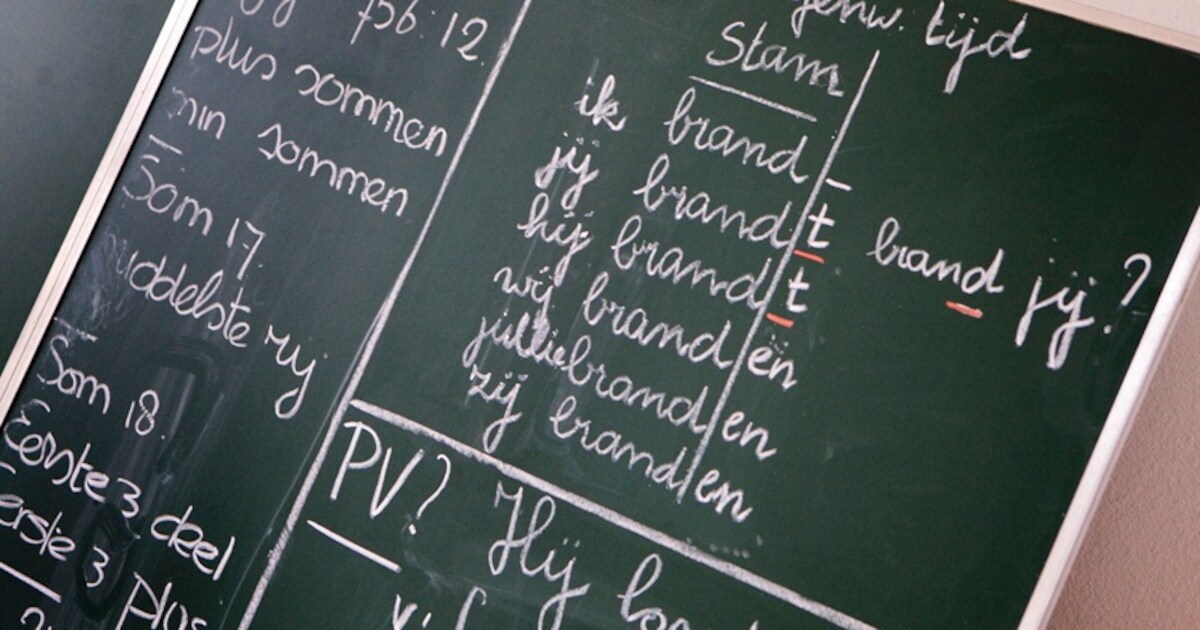 756:12
plus sommen
min sommen
Som 17.
middelste rij
Som 18.
Eerste 3 deel
eerste 3 plus
tijd
Stam
ik brand -
jij brandt brand jij?
hij brandt
wij branden
jullie branden
zij branden
PV? Hij